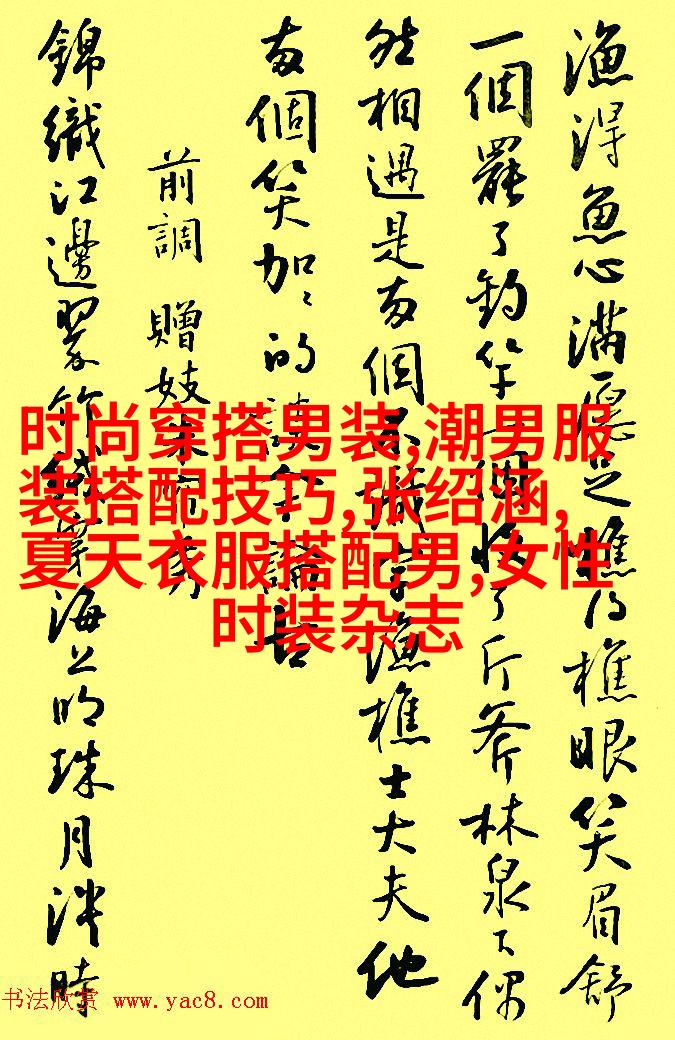 漁得魚心滿愿足樵得樵眼笑眉舒
一個罷了釣竿一個收了斤斧林泉下偶
然相遇是兩個不識字漁樵士大夫他
兩個笑加〻的談今論古
前調 贈妓朱簾秀
錦織江邊翠竹絨穿海上明珠月淡時
时尚穿搭男装,潮男服
装搭配技巧,张绍涵,
夏天衣服搭配男,女性
时装杂志
书法欣赏 www.yac8.com